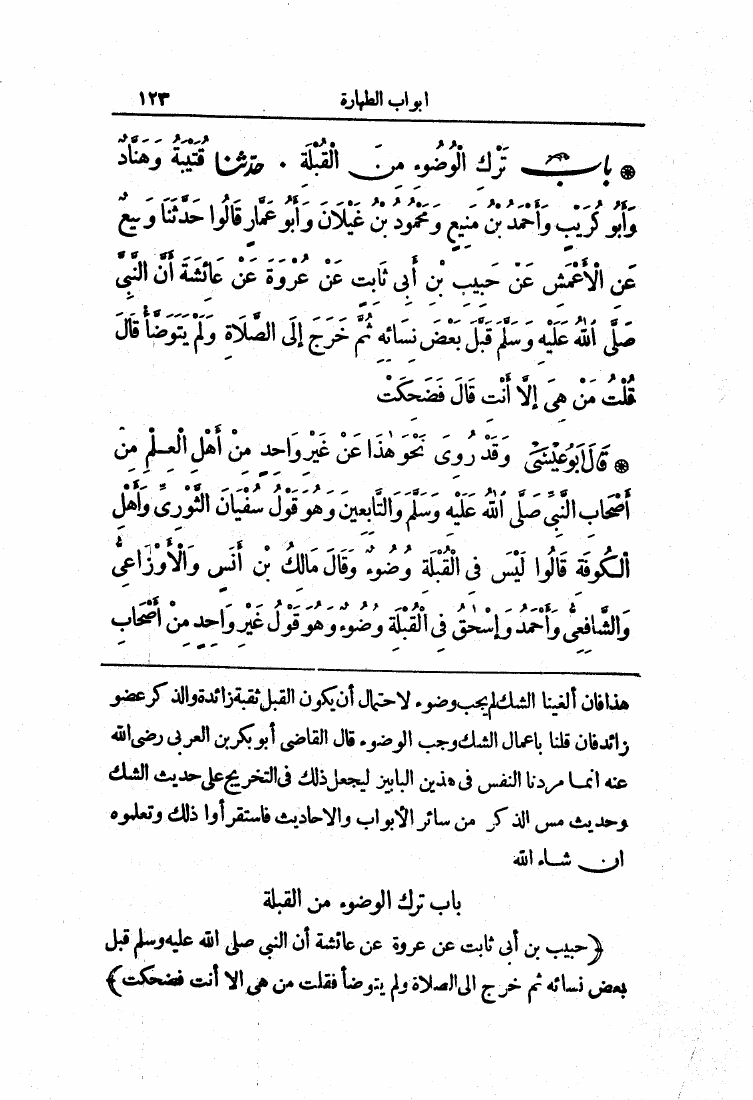 ابواب الطهارة ١٢٣
⁕ باب تَرْكِ الْوُضُوءِ مِنَ الْقُبْلَةِ ٠ حدثنا قُتَيْبَةُ وَهَنَّادٌ
وَأَبُو كُرَيْبٍ وَأَحْمَدُ بْنُ مَنِيعٍ وَمَحْمُودُ بْنُ غَيْلَانَ وَأَبُو عَمَّارٍ قَالُوا حَدَّثَنَا وَكِيعٌ
عَنِ الْأَعْمَشِ عَنْ حَبِيبِ بْنِ أَبِى ثَابِتٍ عَنْ عُرْوَةَ عَنْ عَائِشَةَ أَنَّ النَّبِىَّ
صَلَّى اللهُ عَلَيْهِ وَسَلَّمَ قَبَّلَ بَعْضَ نِسَائِهِ ثُمَّ خَرَجَ إِلَى الصَّلَاةِ وَلَمْ يَتَوَضَّأْ قَالَ
قُلْتُ مَنْ هِىَ إِلَّا أَنْتِ قَالَ فَضَحِكَتْ
⁕ قَالَ أَبُو عِيسَى وَقَدْ رُوِىَ نَحْوَ هٰذَا عَنْ غَيْرِ وَاحِدٍ مِنْ أَهْلِ الْعِلْمِ مِنْ
أَصْحَابِ النَّبِىِّ صَلَّى اللهُ عَلَيْهِ وَسَلَّمَ وَالتَّابِعِينَ وَهُوَ قَوْلُ سُفْيَانَ الثَّوْرِىِّ وَأَهْلِ
الْكُوفَةِ قَالُوا لَيْسَ فِى الْقُبْلَةِ وُضُوءٌ وَقَالَ مَالِكُ بْنُ أَنَسٍ وَالْأَوْزَاعِىُّ
وَالشَّافِعِىُّ وَأَحْمَدُ وَإِسْحٰقُ فِى الْقُبْلَةِ وُضُوءٌ وَهُوَ قَوْلُ غَيْرِ وَاحِدٍ مِنْ أَصْحَابِ
هذا فان ألغينا الشك لم يجب وضوء لاحتمال أن يكون القبل ثقبة زائدة والذكر عضو
زائد فان قلنا باعمال الشك وجب الوضوء قال القاضى أبو بكر بن العربى رضى الله
عنه انما مردنا النفس فى هذين البابين ليجعل ذلك فى التخريج على حديث الشك
وحديث مس الذكر من سائر الأبواب والاحاديث فاستقرأوا ذلك وتعلموه
ان شاء الله
باب ترك الوضوء من القبلة
﴿حبيب بن أبى ثابت عن عروة عن عائشة أن النبى صلى الله عليه وسلم قبل
بعض نسائه ثم خرج الى الصلاة ولم يتوضأ فقلت من هى الا أنت فضحكت﴾